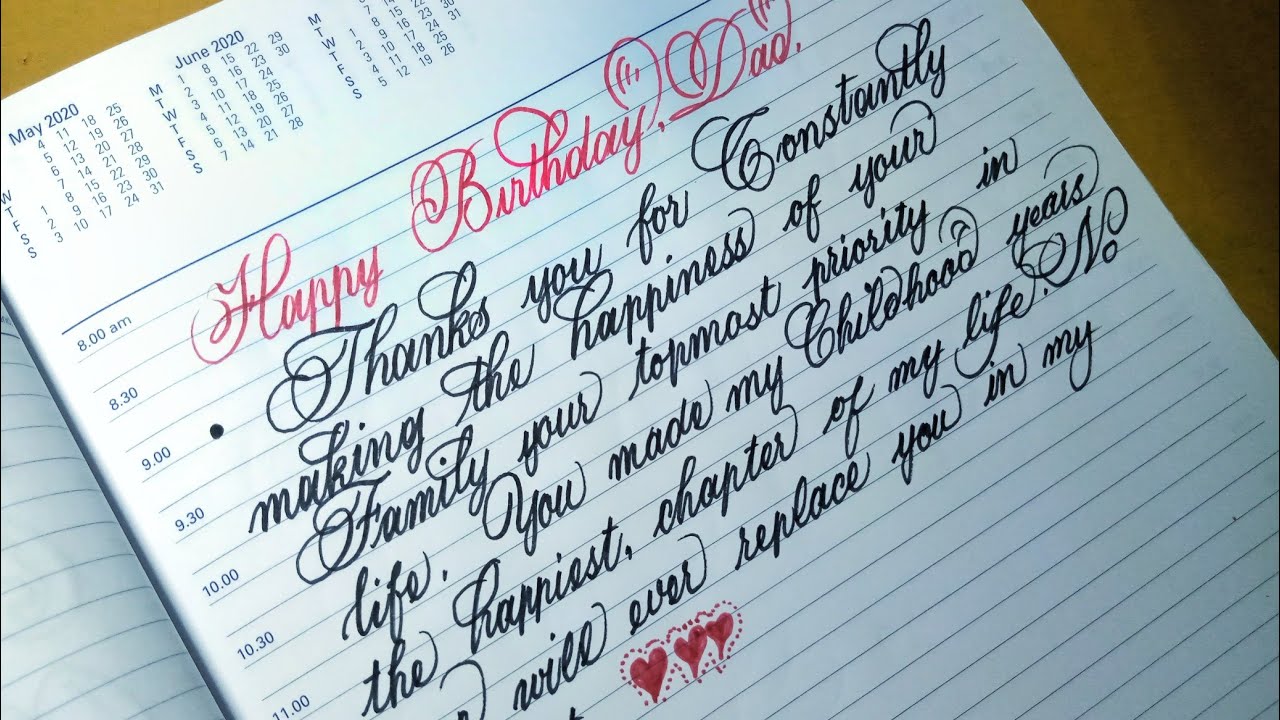 May 2020
4 11 18 25
5 12 19 26
6 13 20 27
W 7 14 21 28
T 1 8 15 22 29
F 2 9 16 23 30
S 3 10 17 24 31
S
June 2020
M 1 8 15 22 29
T 2 9 16 23 30
W 3 10 17 24
T 4 11 18 25
F 5 12 19 26
S 6 13 20 27
S 7 14 21 28
M
T
W 1 8
T 2 9 16 23 30
F 3 10 17 24 31
S 4 11 18 25
S 5 12 19 26
Happy Birthday, Dad.
8.00 am
• Thanks you for Constantly
8.30
making the happiness of your
9.00
Family your topmost priority in
9.30
life. You made my Childhood years
10.00
the happiest, chapter of my life. No
10.30
will ever replace you in my
11.00